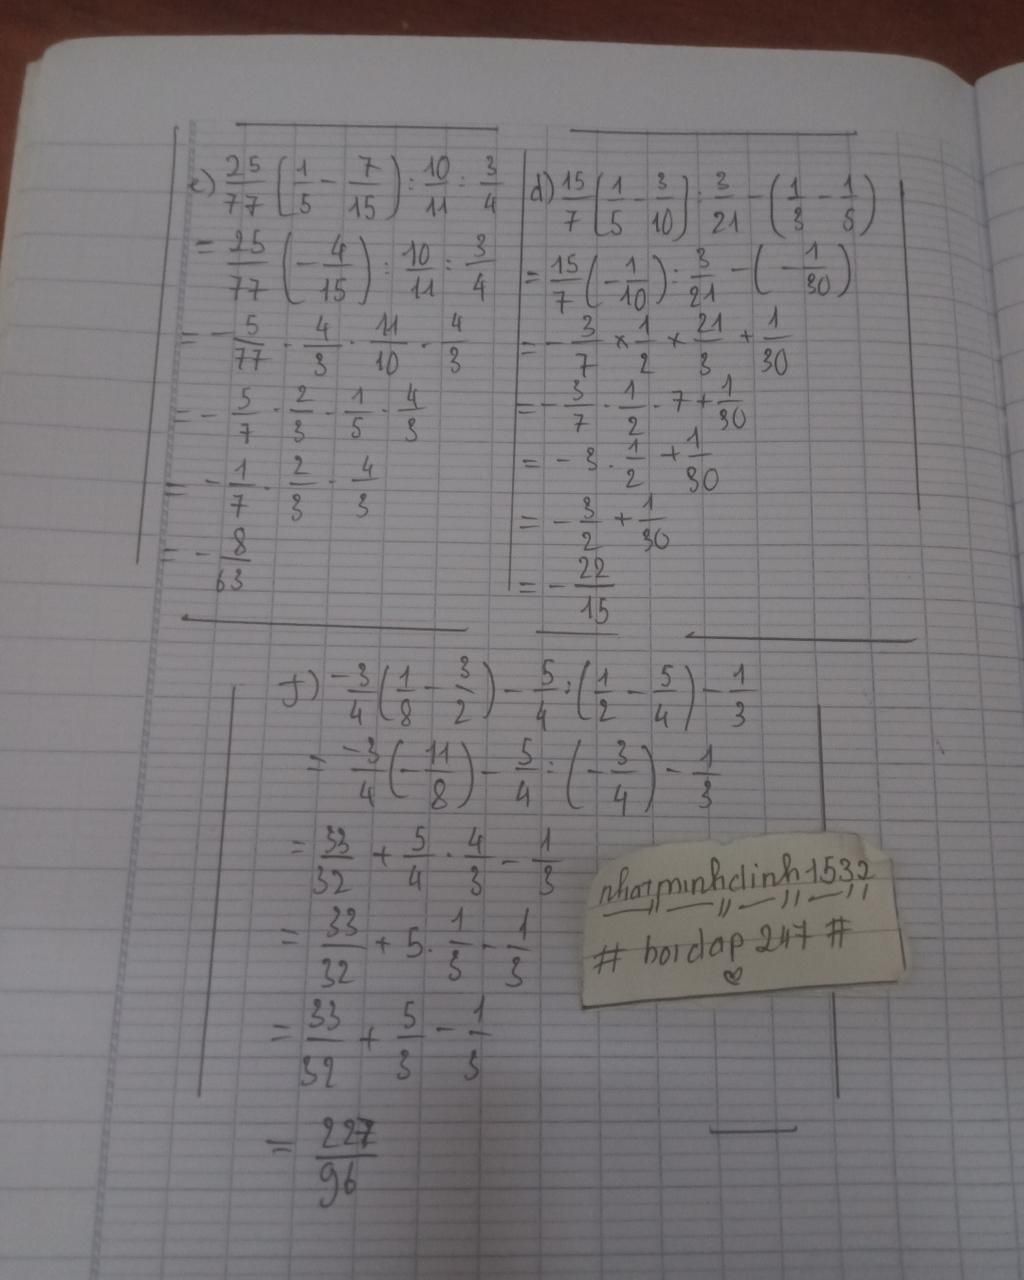 e) 25/77 (1/5 - 7/15) : 10/11 : 3/4
= 25/77 (- 4/15) : 10/11 : 3/4
= - 5/77 · 4/3 · 11/10 · 4/3
= - 5/7 · 2/3 · 1/5 · 4/3
= - 1/7 · 2/3 · 4/3
= - 8/63
d) 15/7 (1/5 - 3/10) : 3/21 - (1/3 - 1/5)
= 15/7 (- 1/10) : 3/21 - (- 1/30)
= - 3/7 × 1/2 × 21/3 + 1/30
= - 3/7 · 1/2 · 7 + 1/30
= - 3 · 1/2 + 1/30
= - 3/2 + 1/30
= - 22/15
f) -3/4 (1/8 - 3/2) - 5/4 : (1/2 - 5/4) - 1/3
= -3/4 (- 11/8) - 5/4 : (- 3/4) - 1/3
= 33/32 + 5/4 · 4/3 - 1/3
= 33/32 + 5 · 1/3 - 1/3
= 33/32 + 5/3 - 1/3
= 227/96
nhatminhdinh1532
# hoidap 247 #